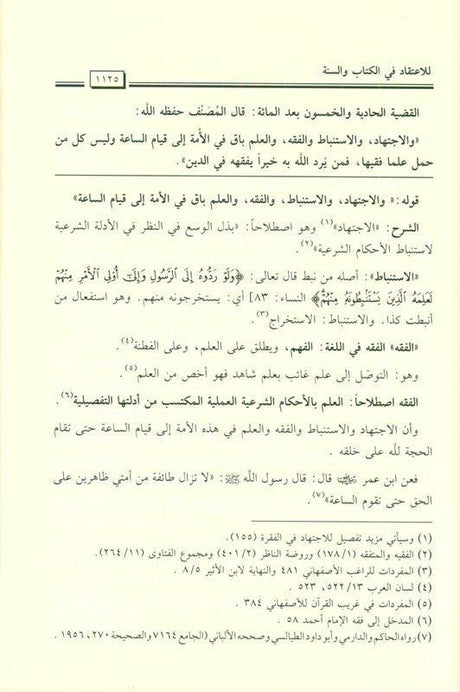 للاعتقاد في الكتاب والسنة
١١٢٥
القضية الحادية والخمسون بعد المائة: قال المُصَنِّف حفظه اللَّه:
«والاجتهاد، والاستنباط والفقه، والعلم باق في الأُمة إلى قيام الساعة وليس كل من
حمل علما فقيها، فمن يُرد اللَّه به خيراً يفقهه في الدين».
قوله: « والاجتهاد، والاستنباط، والفقه، والعلم باق في الأمة إلى قيام الساعة»
الشرح: «الاجتهاد»(١) وهو اصطلاحاً: «بذل الوسع في النظر في الأدلة الشرعية
لاستنباط الأحكام الشرعية»(٢).
«الاستنباط»: أصله من نبط قال تعالى: ﴿وَلَوْ رَدُّوهُ إِلَى ٱلرَّسُولِ وَإِلَىٰٓ أُوْلِى ٱلْأَمْرِ مِنْهُمْ
لَعَلِمَهُ ٱلَّذِينَ يَسْتَنۢبِطُونَهُۥ مِنْهُمْ﴾ النساء: ٨٣] أي: يستخرجونه منهم. وهو استفعال من
أنبطت كذا. والاستنباط: الاستخراج(٣).
«الفقه» الفقه في اللغة: الفهم، ويطلق على العلم، وعلى الفطنة(٤).
وهو: التوصّل إلى علم غائب بعلم شاهد فهو أخص من العلم(٥).
الفقه اصطلاحاً: العلم بالأحكام الشرعية العملية المكتسب من أدلتها التفصيلية(٦).
وأن الاجتهاد والاستنباط والفقه والعلم في هذه الأمة إلى قيام الساعة حتى تقام
الحجة للَّه على خلقه .
فعن ابن عمر ﵄ قال: قال رسول اللَّه ﷺ: «لا تزال طائفة من أمتي ظاهرين على
الحق حتى تقوم الساعة»(٧).
(١) وسيأتي مزيد تفصيل للاجتهاد في الفقرة (١٥٥).
(٢) الفقيه والمتفقه (١٧٨/١) وروضة الناظر (٤٠١/٢) ومجموع الفتاوى (٢٦٤/١١).
(٣) المفردات للراغب الأصفهاني ٤٨١ والنهاية لابن الأثير ٨/٥ .
(٤) لسان العرب ٥٢٢/١٣، ٥٢٣ .
(٥) المفردات في غريب القرآن للأصفهاني ٣٨٤ .
(٦) المدخل إلى فقه الإمام أحمد ٥٨ .
(٧) رواه الحاكم والدارمي وأبو داود الطيالسي وصححه الألباني (الجامع ٧١٦٤ والصحيحة ٢٧٠، ١٩٥٦ .